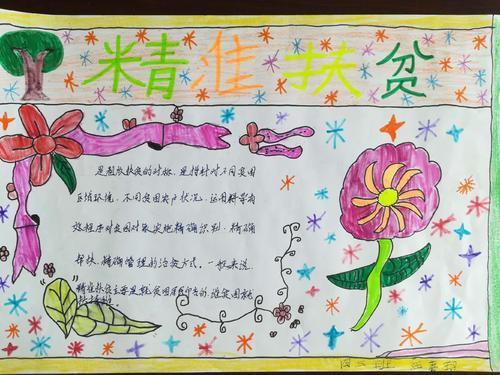 精准扶贫
是粗放扶贫的对称，是指针对不同贫困
区域环境、不同贫困农户状况，运用科学有
效程序对贫困对象实施精确识别、精确
帮扶、精确管理的治贫方式。一般来说，
精准扶贫主要是就贫困居民而言的，谁贫困就
扶持谁。
四 班